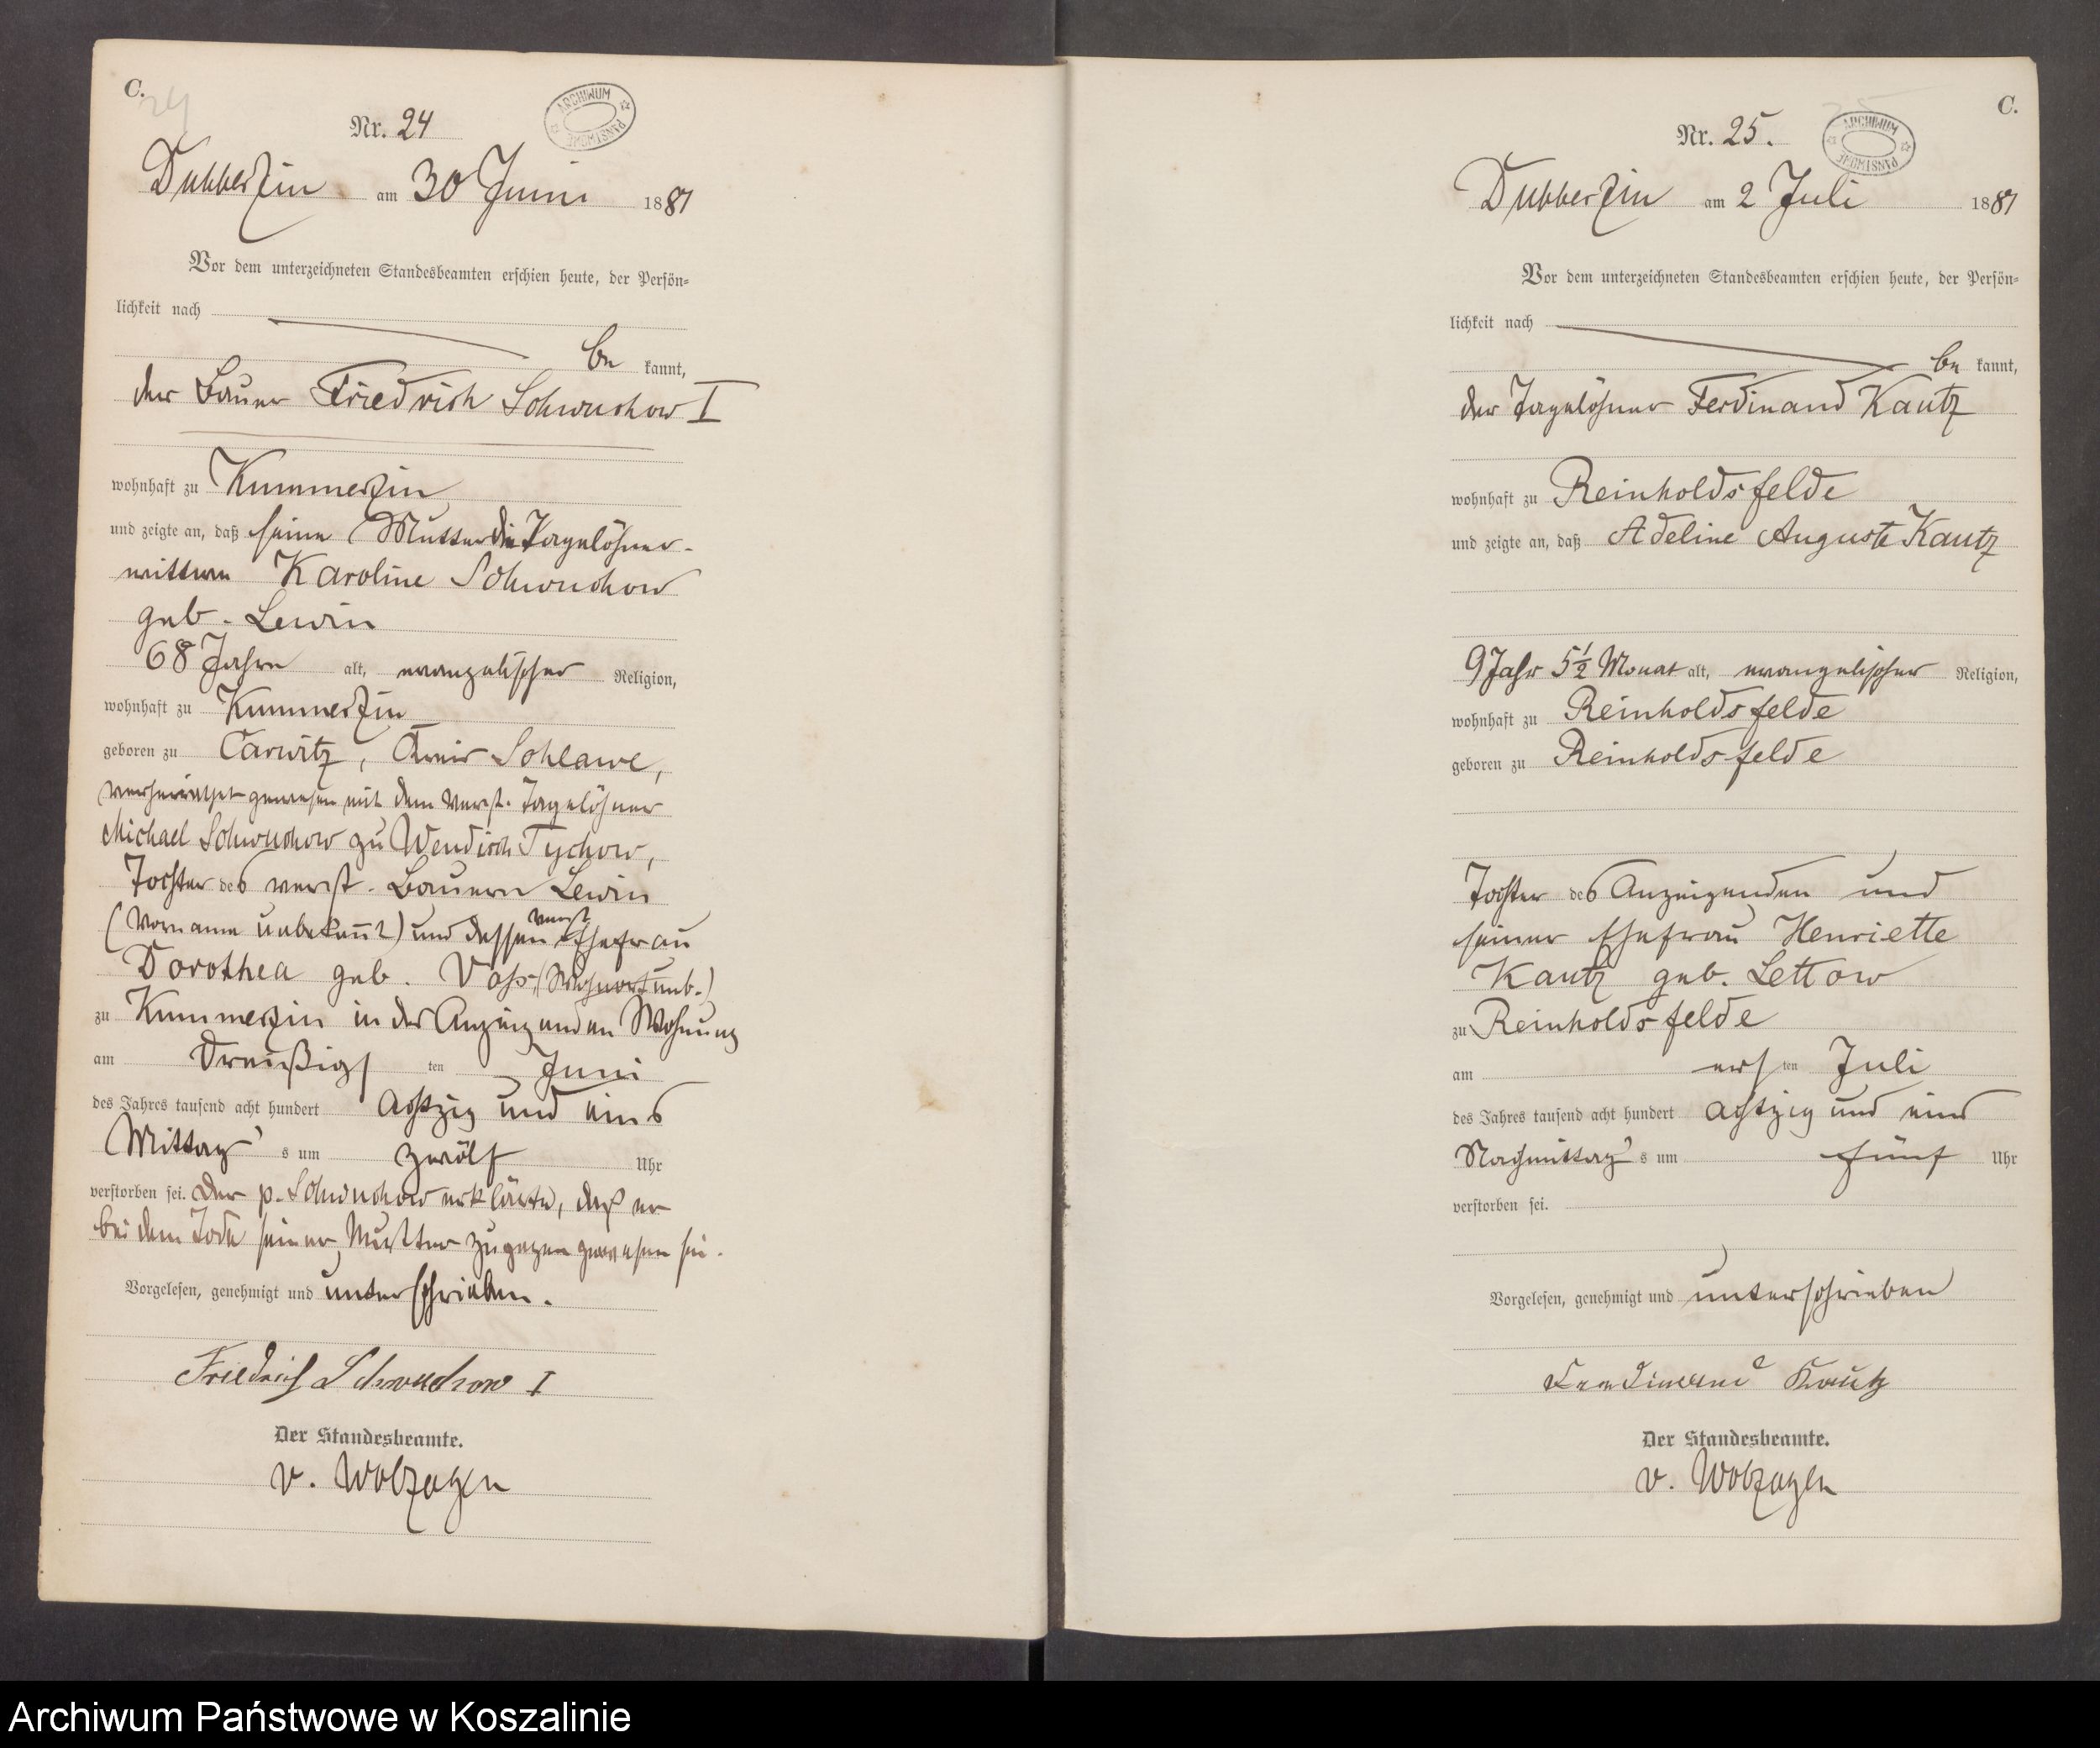 C.
24
Nr. 24
ARCHIWUM PAŃSTWOWE
Dubberzin am 30 Juni 1881
Vor dem unterzeichneten Standesbeamten erschien heute, der Persön=
lichkeit nach
be kannt,
der Bauer Friedrich Schwuchow I
wohnhaft zu Kummerzin
und zeigte an, daß seine Mutter die Tagelöhner-
wittwe Karoline Schwuchow
geb. Lewin
68 Jahre alt, evangelischer Religion,
wohnhaft zu Kummerzin
geboren zu Carwitz, Kreis Schlawe,
verheirathet gewesen mit dem verst. Tagelöhner
Michael Schwuchow zu Wendisch Tychow,
Tochter des verst. Bauern Lewin
(Vorname unbekannt) und dessen verst. Ehefrau
Dorothea geb. Voss, (Wohnort unb.)
zu Kummerzin in der Anzeigenden Wohnung
am Dreißigs ten Juni
des Jahres tausend acht hundert achtzig und eins
Mittag's um zwölf Uhr
verstorben sei. Der p. Schwuchow erklärte, daß er
bei dem Tode seiner Mutter zugegen gewesen sei.
Vorgelesen, genehmigt und unterschrieben.
Friedrich Schwuchow I
Der Standesbeamte.
v. Wolzogen
C.
25
Nr. 25.
ARCHIWUM PAŃSTWOWE
Dubberzin am 2 Juli 1881
Vor dem unterzeichneten Standesbeamten erschien heute, der Persön=
lichkeit nach
be kannt,
der Tagelöhner Ferdinand Kautz
wohnhaft zu Reinholdsfelde
und zeigte an, daß Adeline Auguste Kautz
9 Jahr 5½ Monat alt, evangelischer Religion,
wohnhaft zu Reinholdsfelde
geboren zu Reinholdsfelde
Tochter des Anzeigenden und
seiner Ehefrau Henriette
Kautz geb. Lettow
zu Reinholdsfelde
am ers ten Juli
des Jahres tausend acht hundert achtzig und eins
Nachmittag's um fünf Uhr
verstorben sei.
Vorgelesen, genehmigt und unterschrieben
Ferdinand Kautz
Der Standesbeamte.
v. Wolzogen
Archiwum Państwowe w Koszalinie